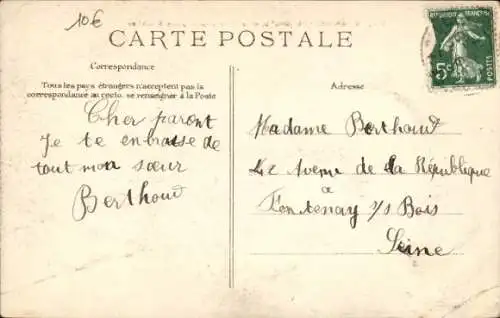 10€
CARTE POSTALE
Correspondance
Tous les pays étrangers n'acceptent pas la
correspondance au recto. se renseigner à la Poste
Cher paront
Je te enbrasse de
tout mon sœur
Berthoud
Adresse
Madame Berthoud
42 Avenue de la République
a
Fontenay s/s Bois
Seine
FRANÇAISE
5c
POSTES